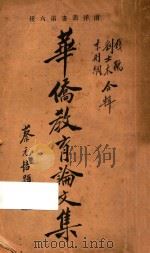 南洋叢書第六種
錢鶴
劉士木 合輯
李則綱
華僑教育論文集
蔡元培題